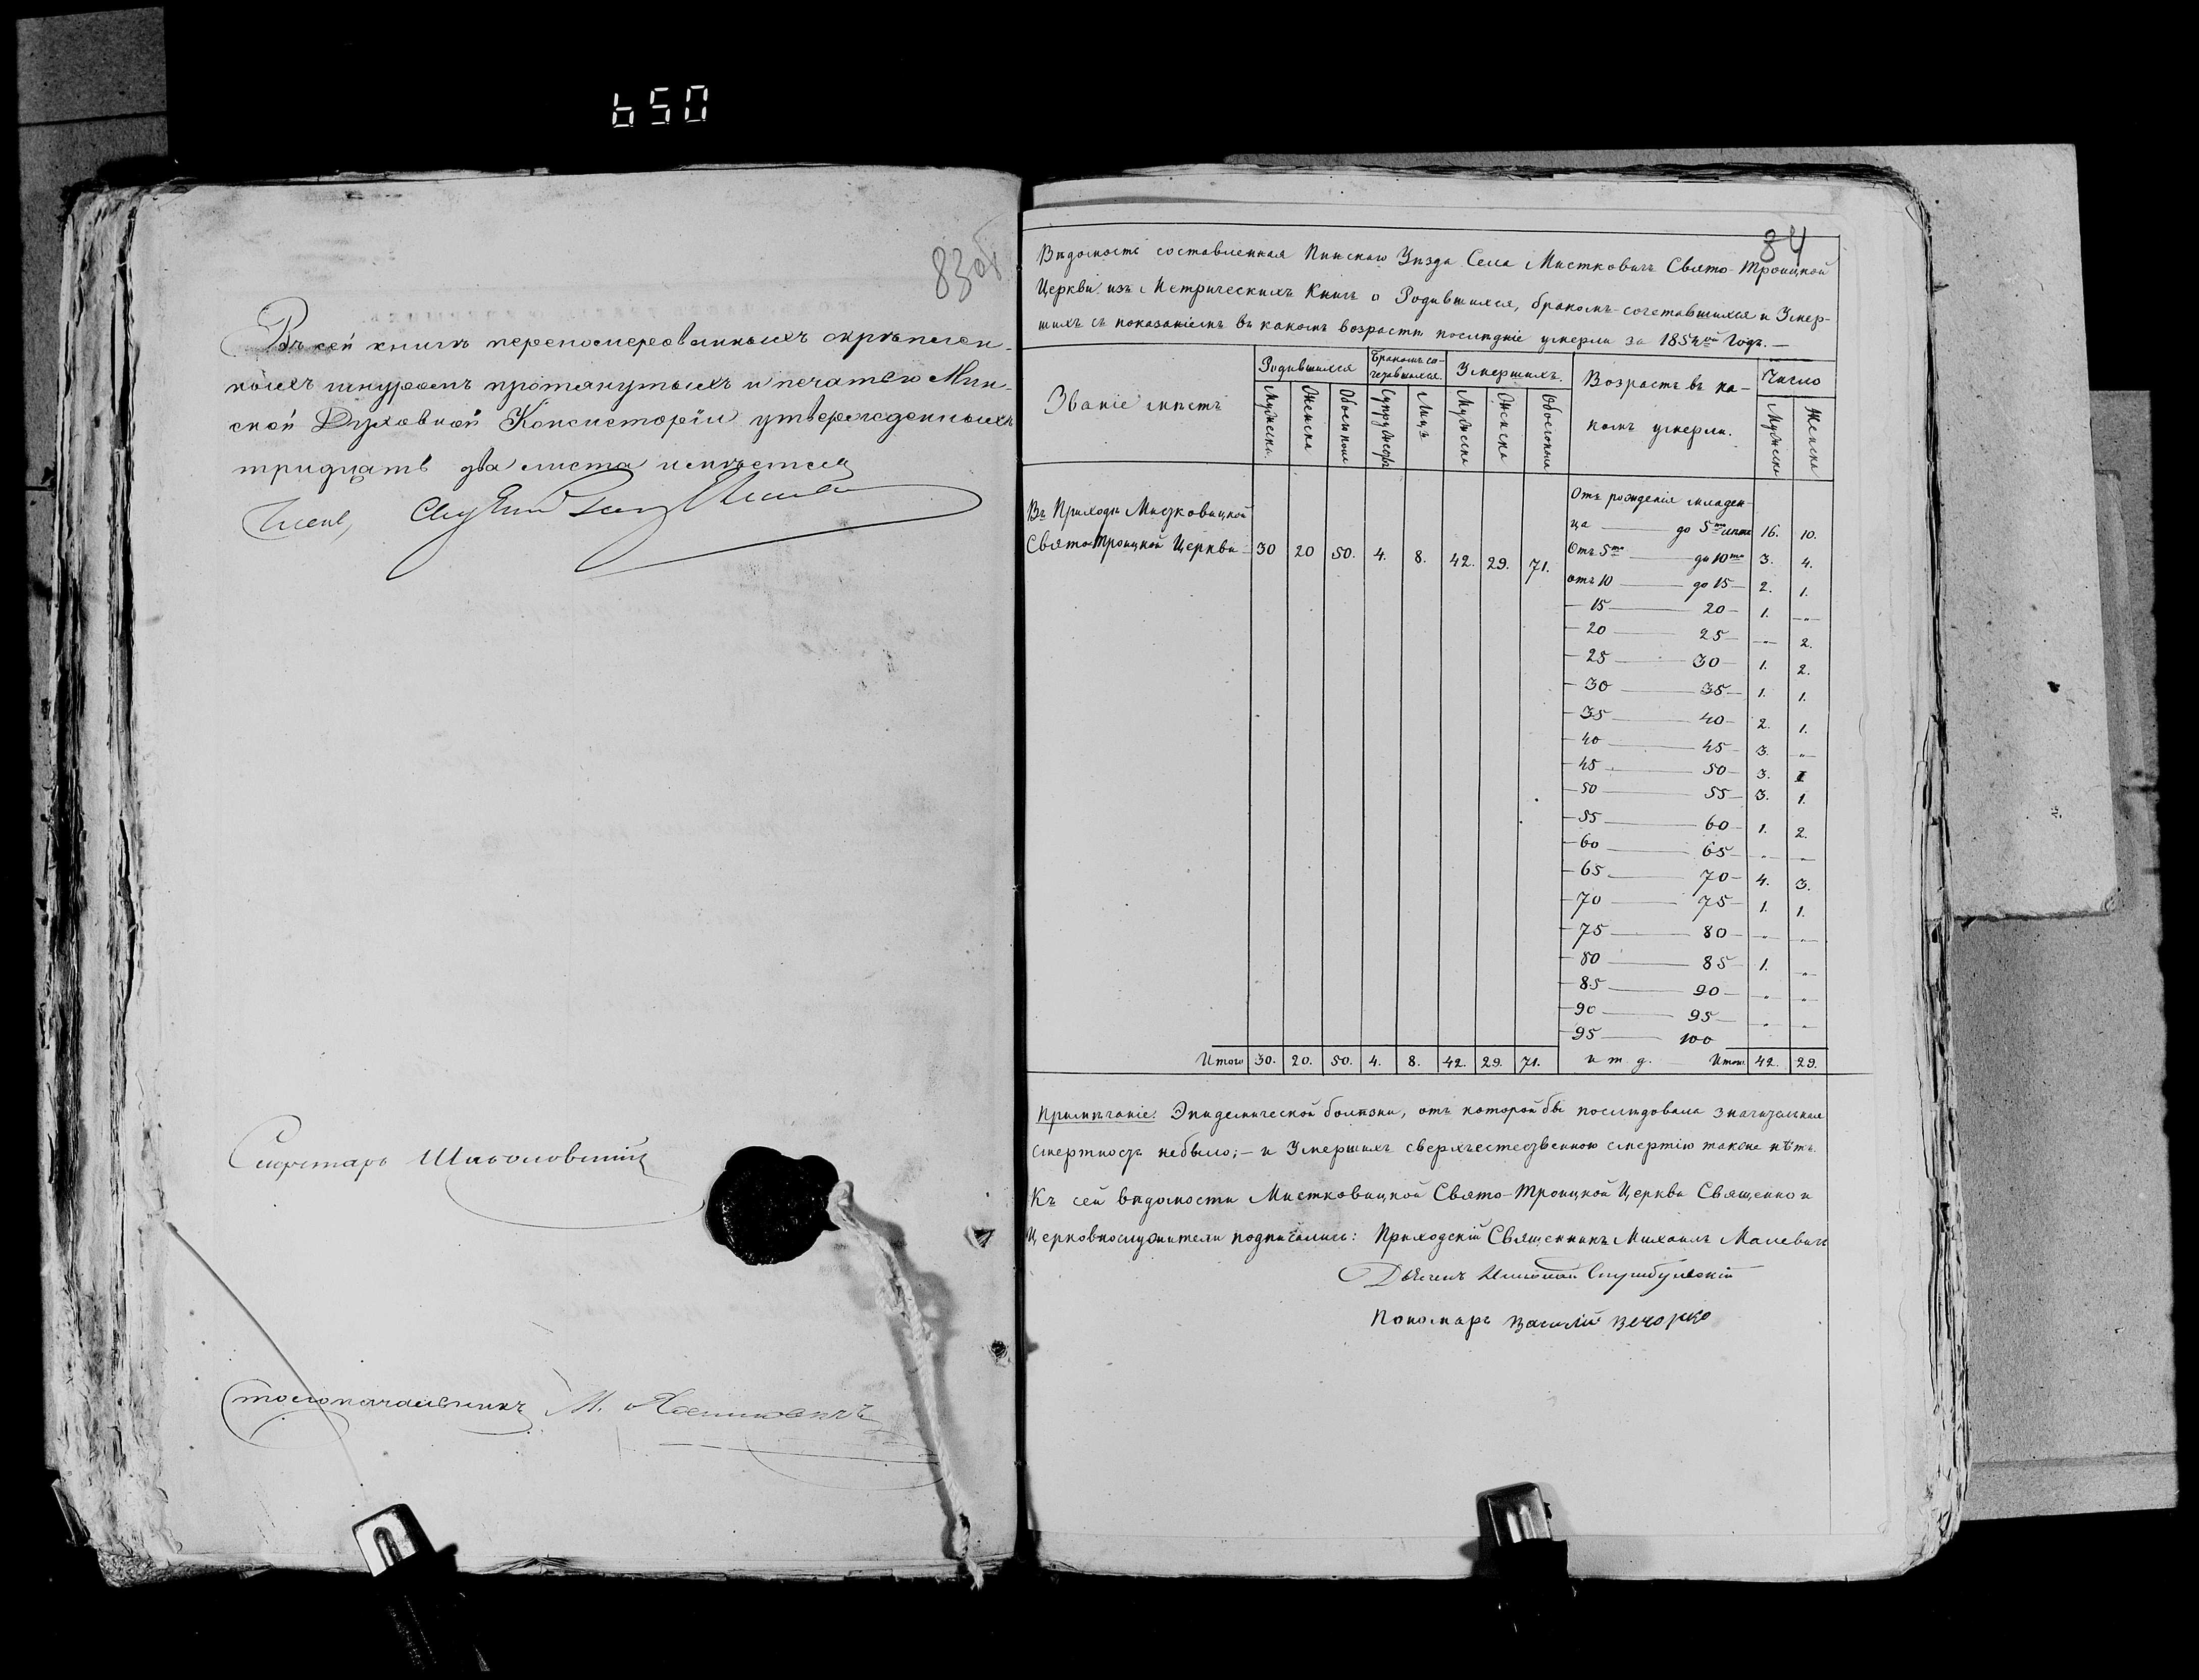 650
83об
Въ сей книгѣ перенумерованныхъ скрѣплен-
ныхъ шнуромъ протянутыхъ и печатью Мин-
ской Духовной Консисторіи утвержденныхъ
тридцать два листа имѣется
Членъ,
Секретарь
Столоначальникъ М.
84
Вѣдомость составленная Пинскаго Уѣзда Села Мистковичъ Свято-Троицкой
Церкви изъ Метрическихъ Книгъ о Родившихся, бракомъ-сочетавшихся и Умер-
шихъ съ показаніемъ въ какомъ возрастѣ послѣдніе умерли за 1854ой Годъ. —
Званіе мѣстъ
Родившихся
Бракомъ со-
четавшихся.
Умершихъ.
Возрастъ въ ка-
комъ умерли.
Число
Мужеска. Женска Обоего пола Супружествъ Лицъ Мужеска Женска Обоего пола Мужеска Женска
Въ Приходѣ Мистковицкой
Свято-Троицкой Церкви 30 20 50. 4. 8. 42. 29. 71.
Отъ рожденія младен-
ца — до 5ти лѣтъ 16. 10.
Отъ 5ти — до 10ти 3. 4.
отъ 10 — до 15 — 2. 1.
— 15 — 20 — 1. -"-
— 20 — 25 — -"- 2.
— 25 — 30 — 1. 2.
— 30 — 35 — 1. 1.
— 35 — 40 — 2. 1.
— 40 — 45 — 3. -"-
— 45 — 50 — 3. 1
— 50 — 55 — 3. 1.
— 55 — 60 — 1. 2.
— 60 — 65 — -"- -"-
— 65 — 70 — 4. 3.
— 70 — 75 — 1. 1.
— 75 — 80 — -"- -"-
— 80 — 85 — 1. -"-
— 85 — 90 — -"- -"-
— 90 — 95 — -"- -"-
— 95 — 100
Итого 30. 20. 50. 4. 8. 42. 29. 71. и т. д. Итого 42. 29.
Примѣчаніе: Эпидемической болѣзни, отъ которой бы послѣдовала значительная
смертность небыло; — и Умершихъ сверхъестественною смертію также нѣтъ.
Къ сей вѣдомости Мистковицкой Свято-Троицкой Церкви Священно и
Церковнослужители подписались: Приходскій Священникъ Михаилъ Малевичъ
Дьячекъ
Пономарь Василій Вечорко